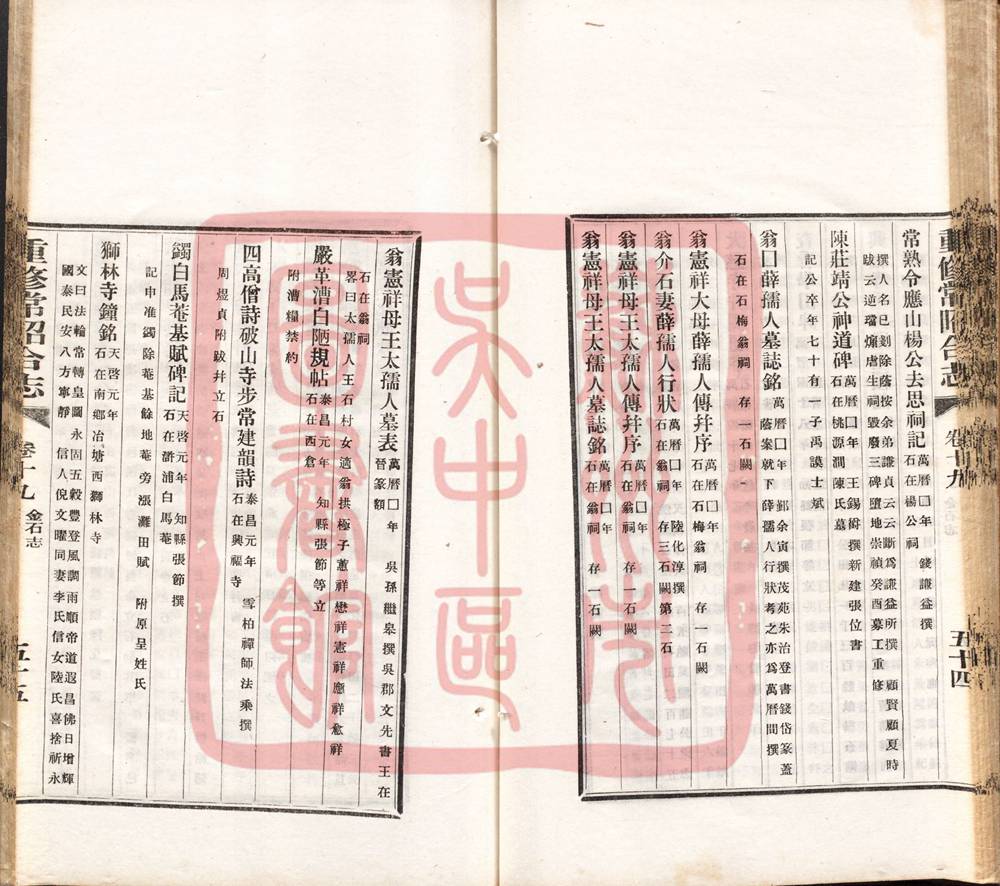 重修常昭合志
卷十九
金石志
五十四
常熟令應山楊公去思祠記
萬曆□年 錢謙益撰
石在楊公祠
撰人名已剗除蔭按余弟謙貞云云斷為謙益所撰 顧賢顧夏時
跋云逆璫煽虐生祠毀廢三碑墮地崇禎癸酉墓工重修
陳莊靖公神道碑
萬曆□年 王錫爵撰 新建張位書
石在桃源澗陳氏墓
記公卒年七十有一子禹謨士斌
翁□薛孺人墓誌銘
萬曆□年 鄞余寅撰茂苑朱治登書錢岱篆蓋
蔭案就下薛孺人行狀考之亦為萬曆間撰
石在石梅翁祠 存一石闕
翁憲祥大母薛孺人傳并序
萬曆□年
石在石梅翁祠 存一石闕
翁介石妻薛孺人行狀
萬曆□年 陸化淳撰
石在翁祠 存三石闕第二石
翁憲祥母王太孺人傳并序
萬曆□年
石在翁祠 存一石闕
翁憲祥母王太孺人墓誌銘
萬曆□年
石在翁祠 存一石闕
翁憲祥母王太孺人墓表
萬曆□年 吳孫繼皋撰吳郡文先書王在
晉篆額
石在翁祠
畧曰太孺人王石村女適翁拱極子蕙祥懋祥憲祥應祥愈祥
嚴革漕白陋規帖
泰昌元年 知縣張節等立
石在西倉
附漕糧禁約
四高僧詩破山寺步常建韻詩
泰昌元年 雪柏禪師法乘撰
石在興福寺
周煜貞附跋并立石
蠲白馬菴基賦碑記
天啓元年 知縣張節撰
石在滸浦白馬菴
記申准蠲除菴基餘地菴旁漲灘田賦 附原呈姓氏
獅林寺鐘銘
天啓元年
石在南鄉冶塘西獅林寺
文曰法輪常轉皇圖永固五穀豐登風調雨順帝道遐昌佛日增輝
國泰民安八方寧靜 信人倪文曜同妻李氏信女陸氏喜捨祈永
重修常昭合志
卷十九
金石志
五十五
吳中區
圖書館